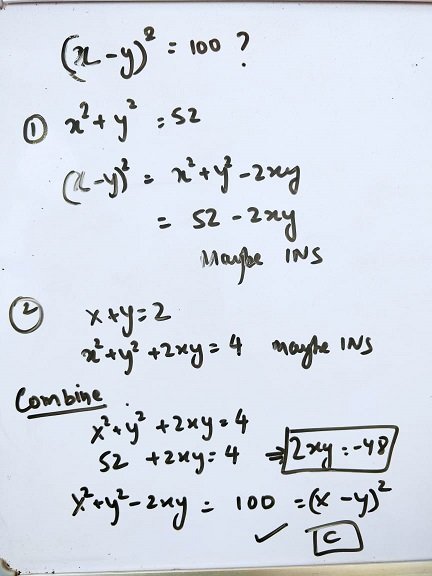 (x-y)² = 100 ?
① x² + y² = 52
(x-y)² = x² + y² - 2xy
= 52 - 2xy
Maybe INS
② x+y = 2
x² + y² + 2xy = 4 maybe INS
Combine
x² + y² + 2xy = 4
52 + 2xy = 4 ⇒ 2xy = -48
x² + y² - 2xy = 100 = (x - y)²
✓ C